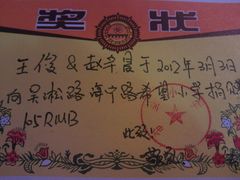 奖状
王俊 & 赵辛霞于2012年3月3日
向吴淞路海宁路希望小学捐赠
105RMB
此致